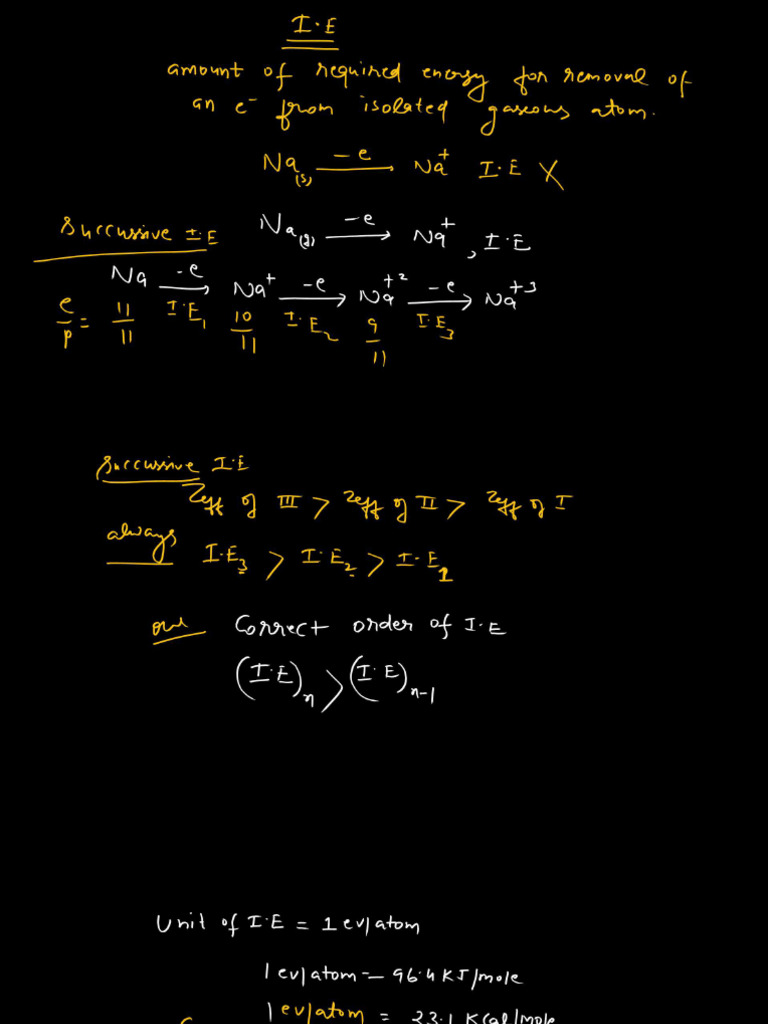 I.E
amount of required energy for removal of
an e⁻ from isolated gaseous atom.
Na(s) —-e→ Na⁺ I.E X
Na(g) —-e→ Na⁺, I.E
Successive I.E
Na —-e→ Na⁺ —-e→ Na⁺² —-e→ Na⁺³
e/p = 11/11 I.E₁ 10/11 I.E₂ 9/11 I.E₃
Successive I.E
Zeff of III > Zeff of II > Zeff of I
always
I.E₃ > I.E₂ > I.E₁
Correct order of I.E
(I.E)n > (I.E)n-1
Unit of I.E = 1 ev/atom
1 ev/atom = 96.4 KJ/mole
1 ev/atom = 23.1 Kcal/mole